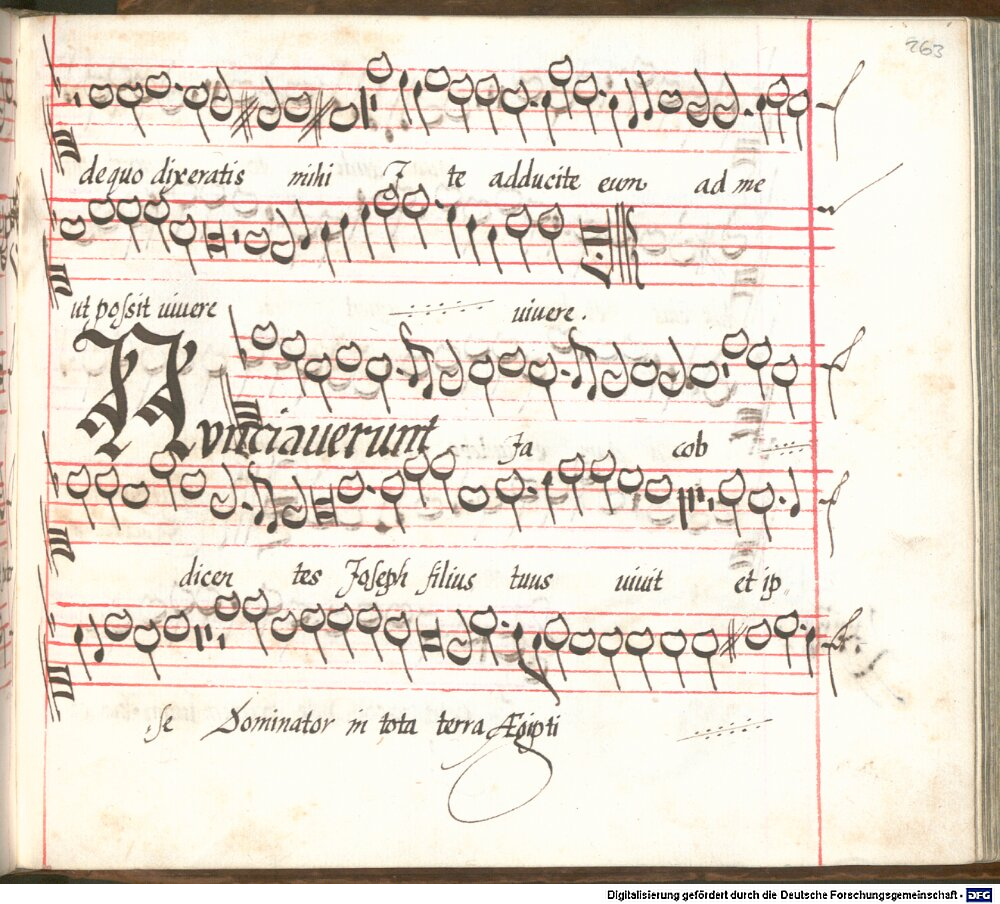 263
de quo dixeratis mihi Ite adducite eum ad me
ut possit uiuere uiuere.
Nunciauerunt Jacob
dicentes Joseph filius tuus uiuit et ip„
se Dominator in tota terra Ægipti
Digitalisierung gefördert durch die Deutsche Forschungsgemeinschaft - DFG